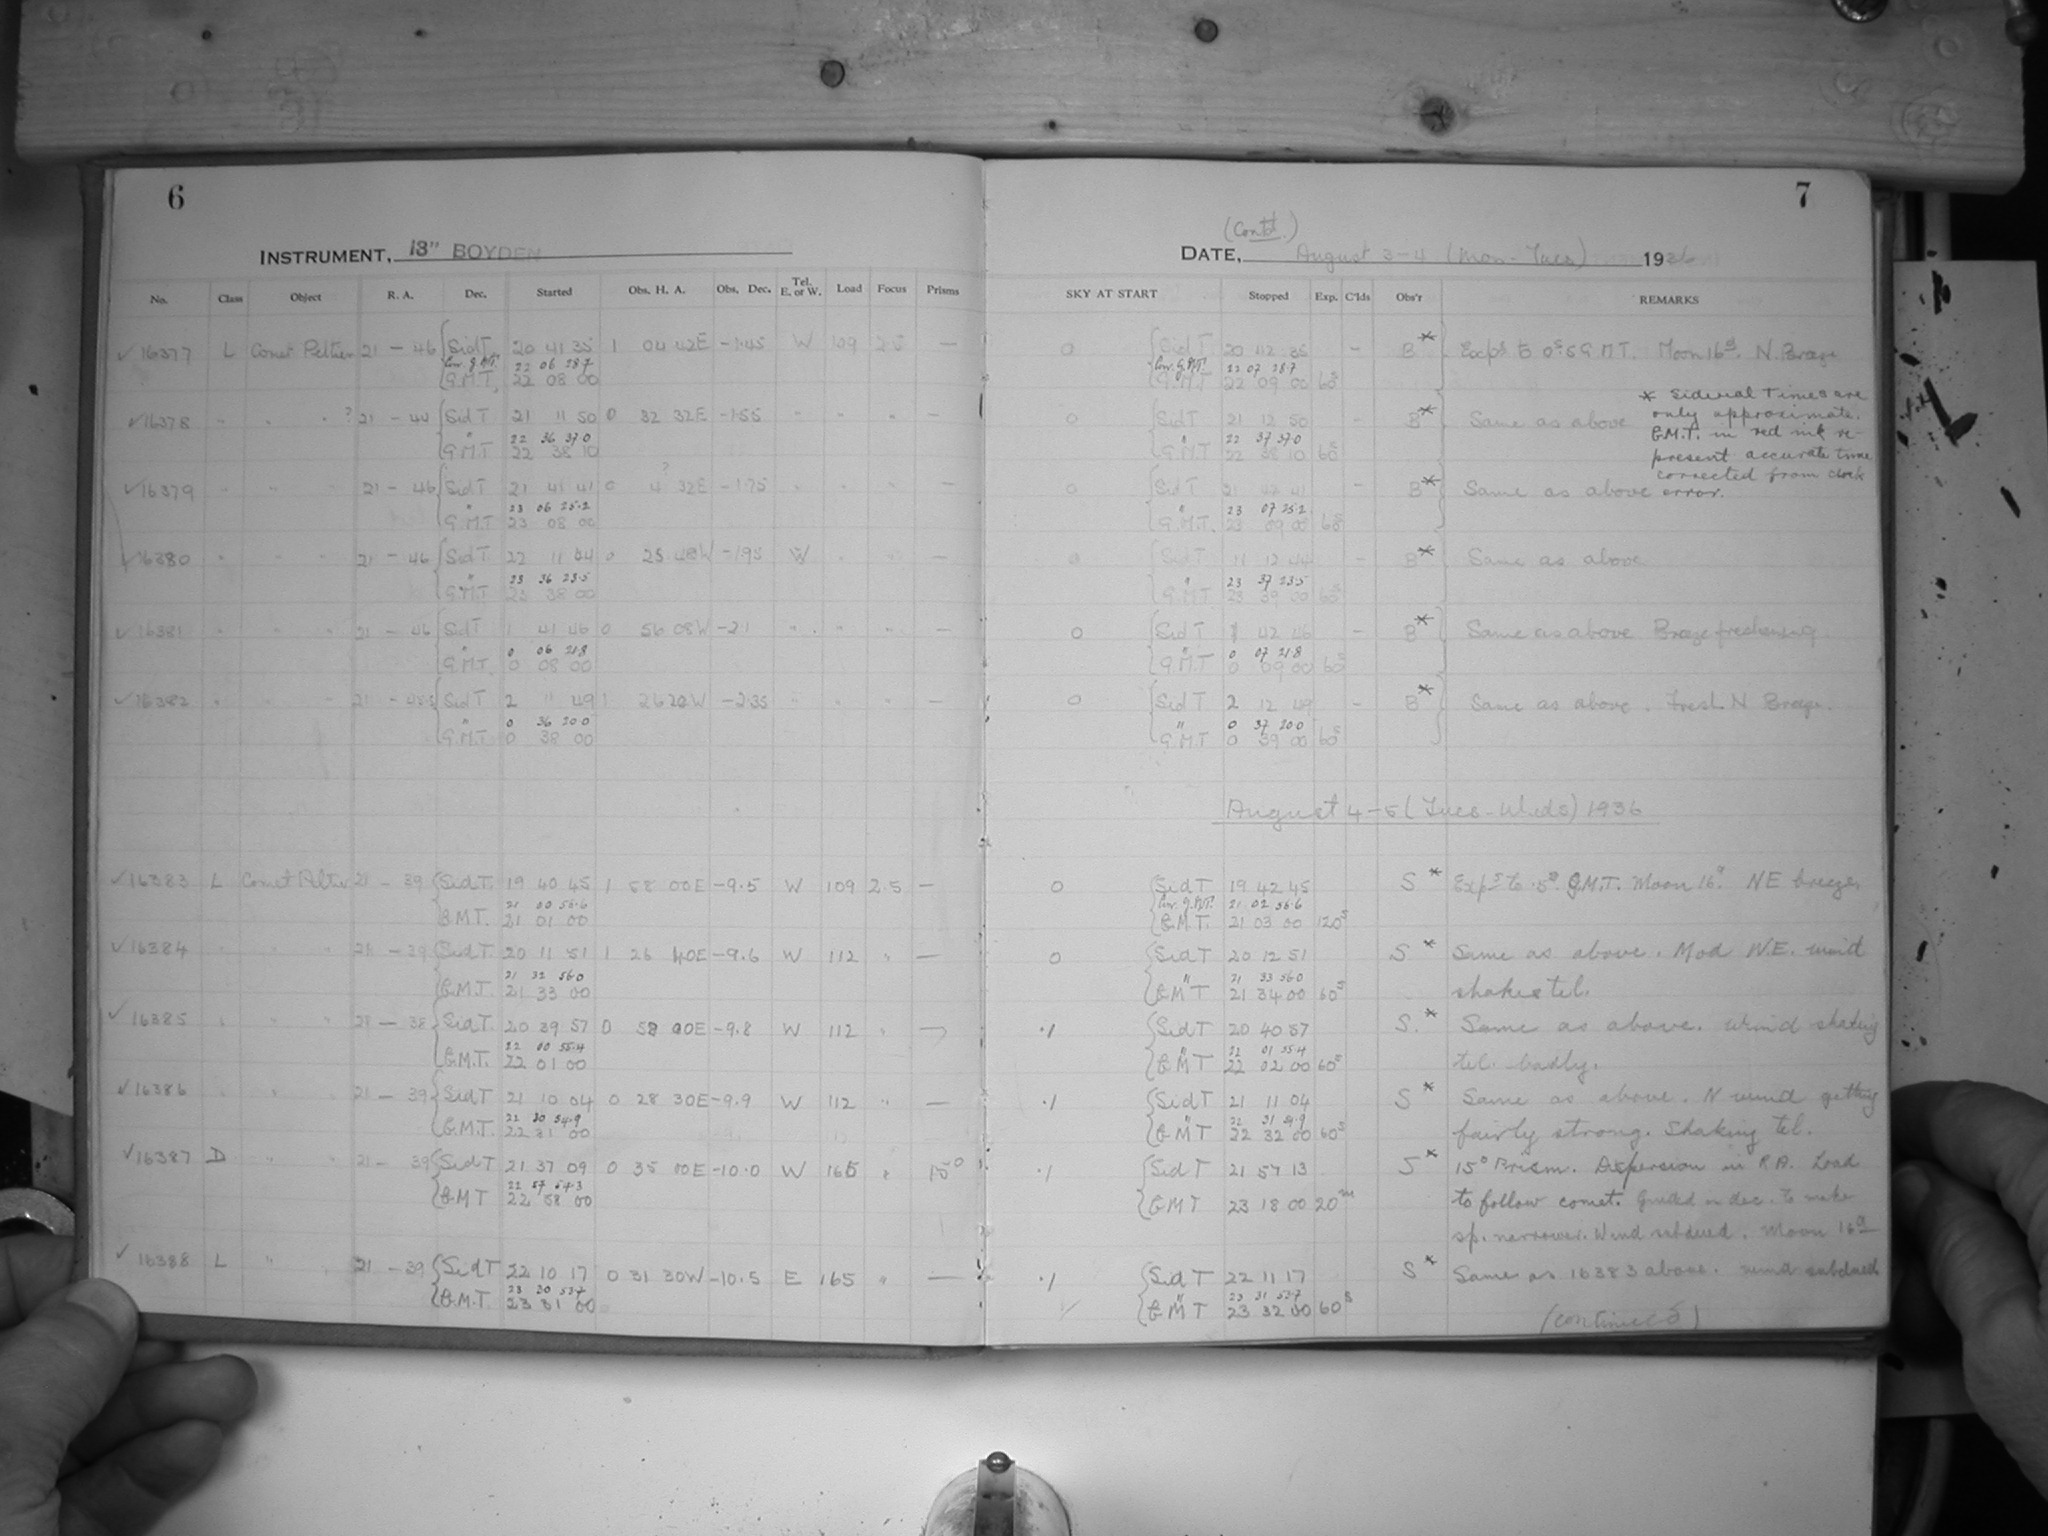 6
INSTRUMENT, 13" BOYDEN
No. Class Object R. A. Dec. Started Obs. H. A. Obs. Dec. Tel. E. or W. Load Focus Prisms
✓16377 L Comet Peltier 21 - 46 Sid T 20 41 35 1 04 42E -1.45 W 109 2.5 —
Corr. G.M.T. 22 06 28.7
G.M.T. 22 08 00
✓16378 " " " ? 21 - 44 Sid T 21 11 50 0 32 32E -1.55 " " " —
" 22 36 37.0
G.M.T 22 38 10
✓16379 " " " 21 - 46 Sid T 21 41 41 0 4 ? 32E -1.75 " " " —
" 23 06 25.2
G.M.T 23 08 00
✓16380 " " " 21 - 46 Sid T 22 11 44 0 25 48W -1.95 W " " —
" 23 36 23.5
G.M.T 23 38 00
✓16381 " " " 21 - 46 Sid T 1 41 46 0 56 08W -2.1 " " " —
" 0 06 21.8
G.M.T. 0 08 00
✓16382 " " " 21 Sid T 2 11 49 1 26 20W -2.35 " " " —
" 0 36 20.0
G.M.T 0 38 00
✓16383 L Comet Peltier 21 - 39 Sid T. 19 40 45 1 58 00E -9.5 W 109 2.5 —
21 00 56.6
G.M.T. 21 01 00
✓16384 " " " 21 - 39 Sid T 20 11 51 1 26 40E -9.6 W 112 " —
21 32 56.0
G.M.T. 21 33 00
✓16385 " " " 21 - 38 Sid T. 20 39 57 0 58 00E -9.8 W 112 " —
22 00 55.4
G.M.T. 22 01 00
✓16386 " " " 21 - 39 Sid T 21 10 04 0 28 30E -9.9 W 112 " —
22 30 54.9
G.M.T. 22 31 00
✓16387 D " " 21 - 39 Sid T 21 37 09 0 35 00E -10.0 W 165 " 15°
22 57 54.3
G.M.T 22 58 00
✓16388 L " " 21 - 39 Sid T 22 10 17 0 31 30W -10.5 E 165 " —
23 30 53.7
G.M.T. 23 31 00
7
(Contd.)
DATE, August 3-4 (Mon-Tues) 1936
SKY AT START Stopped Exp. C'lds Obs'r REMARKS
0 Sid T 20 42 35 - B* Exps to 0s.5 G.M.T. Moon 16d. N. Breeze
Corr. G.M.T. 22 07 28.7
G.M.T 22 09 00 60s
* Sidereal Times are
only approximate.
G.M.T. in red ink re-
present accurate time
corrected from clock
error.
0 Sid T 21 12 50 - B* Same as above
" 22 37 37.0
G.M.T 22 38 10 60s
0 Sid T 21 42 41 - B* Same as above
" 23 07 25.2
G.M.T. 23 09 00 60s
0 Sid T 12 44 - B* Same as above.
" 23 37 23.5
G.M.T 23 39 00 60s
0 Sid T 42 46 - B* Same as above Breeze freshening.
" 0 07 21.8
G.M.T 0 09 00 60s
0 Sid T 2 12 49 - B* Same as above. Fresh N Breeze.
" 0 37 20.0
G.M.T 0 39 00 60s
August 4-5 (Tues-Weds) 1936
0 Sid T 19 42 45 S* Exps to .5s G.M.T. Moon 16d. NE breeze,
Corr. G.M.T. 21 02 56.6
G.M.T. 21 03 00 120s
0 Sid T 20 12 51 S* Same as above. Mod N.E. wind
" 21 33 56.0
G.M.T 21 34 00 60s shakes tel.
.1 Sid T 20 40 57 S.* Same as above. Wind shaking
" 22 01 55.4
G.M.T 22 02 00 60s tel. badly.
.1 Sid T 21 11 04 S* Same as above. N wind getting
" 22 31 54.9
G.M.T 22 32 00 60s fairly strong. Shaking tel.
.1 Sid T 21 57 13 S* 15° Prism. Dispersion in R.A. Load
G.M.T 23 18 00 20m to follow comet. Guided in dec. to make
sp. narrower. Wind subdued. Moon 16d
.1 Sid T 22 11 17 S* Same as 16383 above. Wind subdued
" 23 31 53.7
G.M.T 23 32 00 60s
(continued)